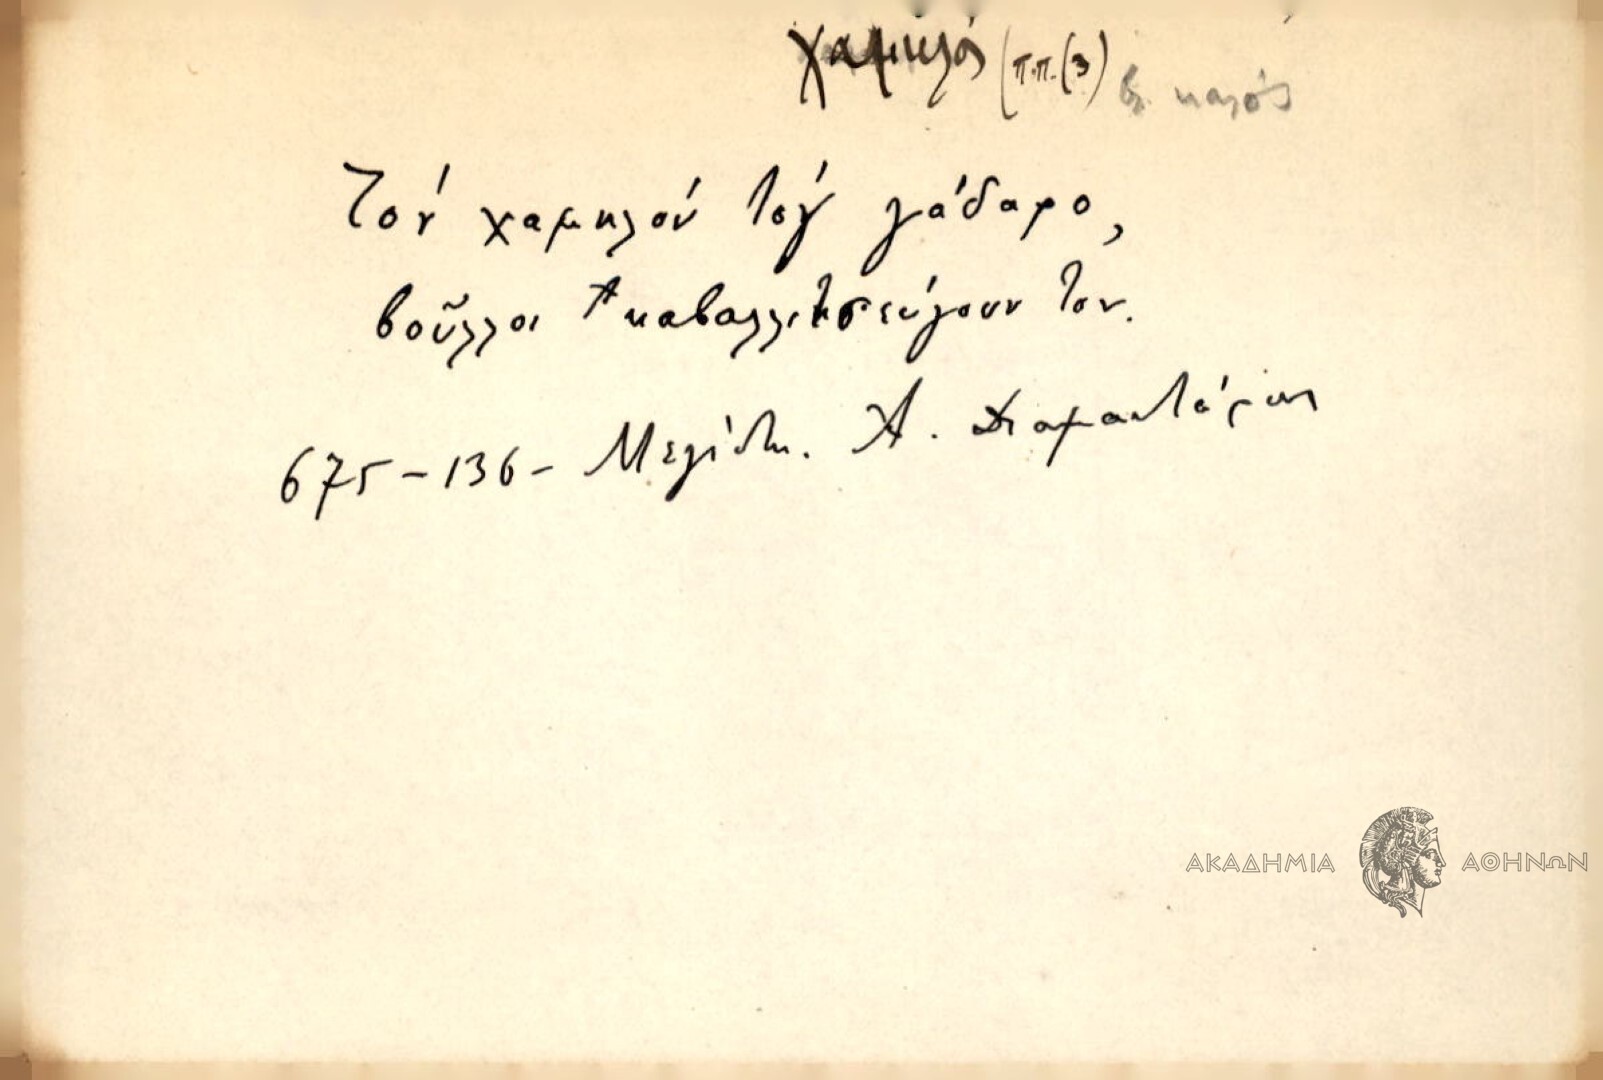 χαμηλός (π.π. (3) βλ. καλός
Τόν χαμηλόν τόγ γάδαρο,
βοῦλλοι καβαλλιτσεύγουν τον.
675-136- Μεγίστη. Ἀ. Διαμαντάρας
ΑΚΑΔΗΜΙΑ ΑΘΗΝΩΝ